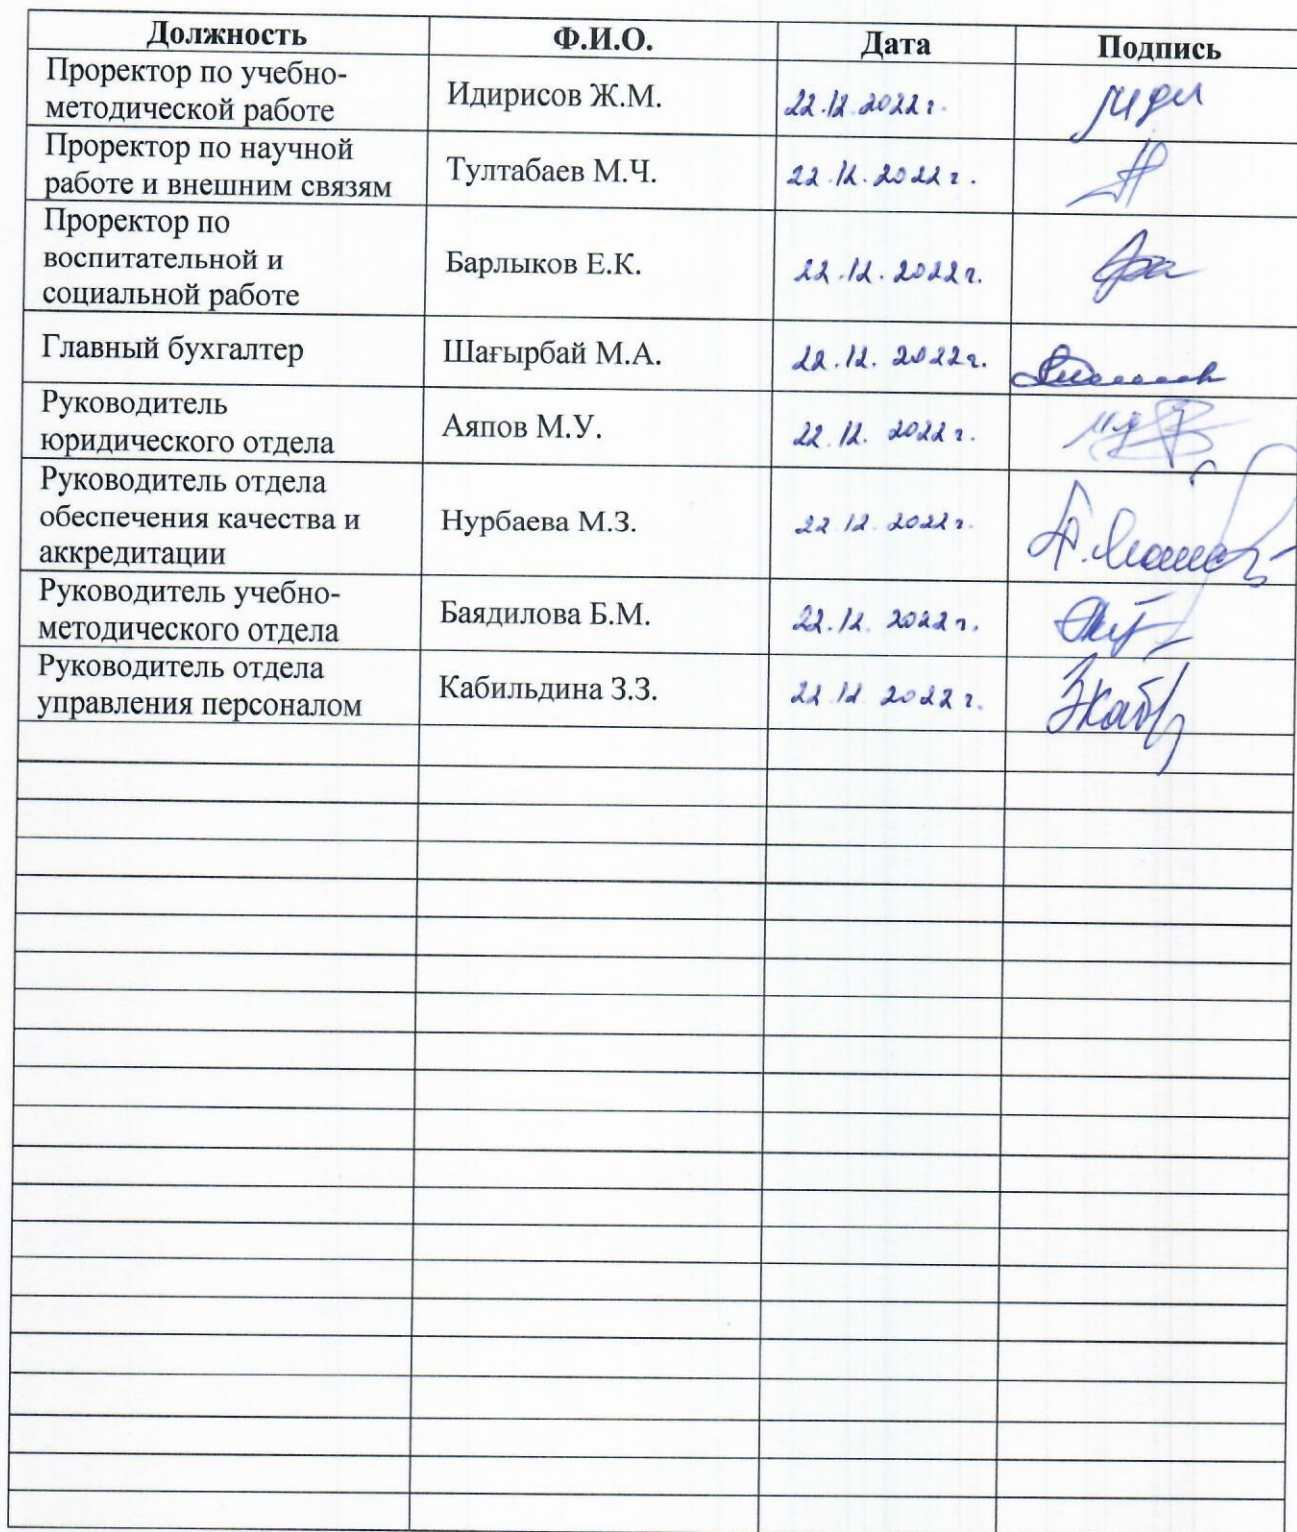 Должность Ф.И.О. Дата Подпись
Проректор по учебно-
методической работе Идирисов Ж.М. 22.12.2022г.
Проректор по научной
работе и внешним связям Тултабаев М.Ч. 22.12.2022г.
Проректор по
воспитательной и
социальной работе Барлыков Е.К. 22.12.2022г.
Главный бухгалтер Шағырбай М.А. 22.12.2022г.
Руководитель
юридического отдела Аяпов М.У. 22.12.2022г.
Руководитель отдела
обеспечения качества и
аккредитации Нурбаева М.З. 22.12.2022г.
Руководитель учебно-
методического отдела Баядилова Б.М. 22.12.2022г.
Руководитель отдела
управления персоналом Кабильдина З.З. 22.12.2022г.